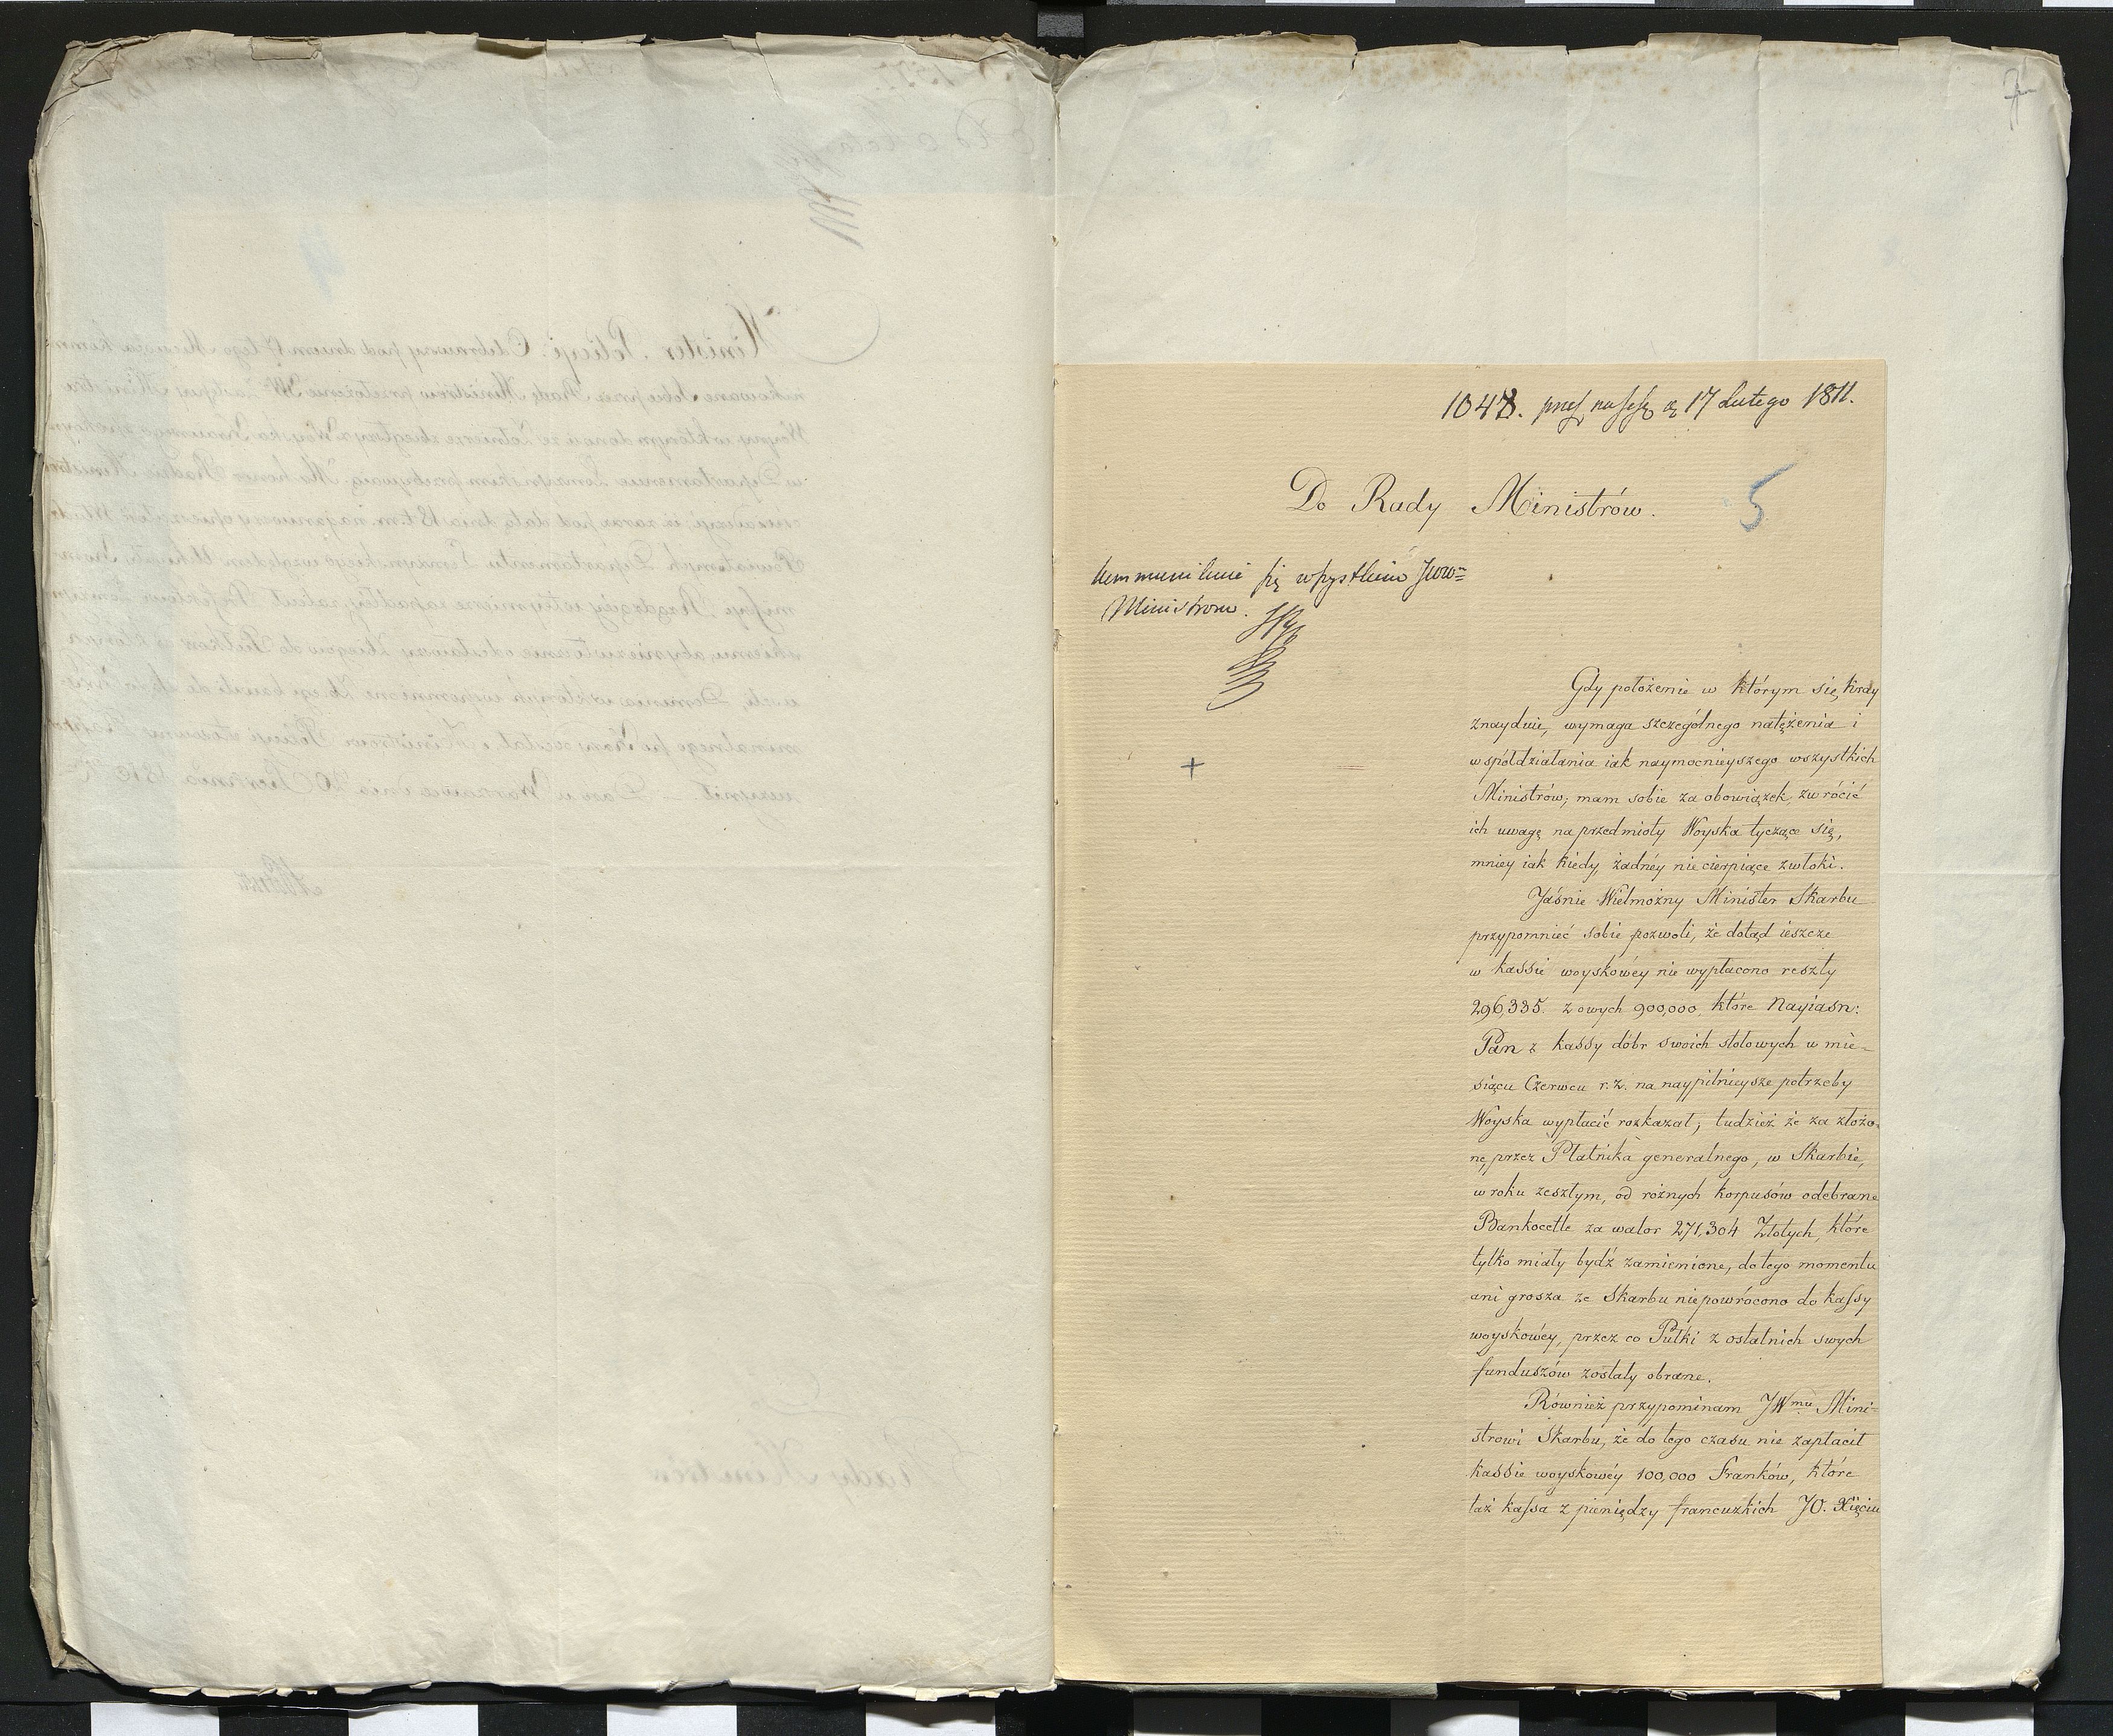 7
1048. pres na sess. d. 17 Lutego 1811.
Do Rady Ministrów.
5
kommunikuie się wszystkim JWW=
Ministrom.
+
Gdy położenie w którym się kray
znayduie, wymaga szczególnego natężenia i
współdziałania iak naymocnieyszego wszystkich
Ministrów; mam sobie za obowiązek, zwrócić
ich uwagę na przedmioty Woyska tyczące się,
mniey iak kiedy, żadnéy nie cierpiące zwłoki.
Jaśnie Wielmożny Minister Skarbu
przypomnieć sobie pozwoli, że dotąd ieszcze
w kassie woyskowéy nie wypłacono reszty
296,335. z owych 900,000, które Nayiasn:
Pan z kassy dóbr swoich stołowych w mie-
siącu Czerwcu r. z. na naypilnieysze potrzeby
Woyska wypłacić rozkazał; tudzież że za złożo-
ne, przez Płatnika generalnego, w Skarbie,
w roku zeszłym, od rożnych korpusów odebrane
Bankocetle za walor 271,304 Złotych, które
tylko miały bydź zamienione, do tego momentu
ani grosza ze Skarbu niepowrócono do kassy
woyskowéy, przez co Pułki z ostatnich swych
funduszów zostały obrane.
Również przypominam JWmu Mini=
strowi Skarbu, że do tego czasu nie zapłacił
kassie woyskowéy 100,000 Franków, które
taż kassa z pieniędzy francuzkich JO. Xięciu